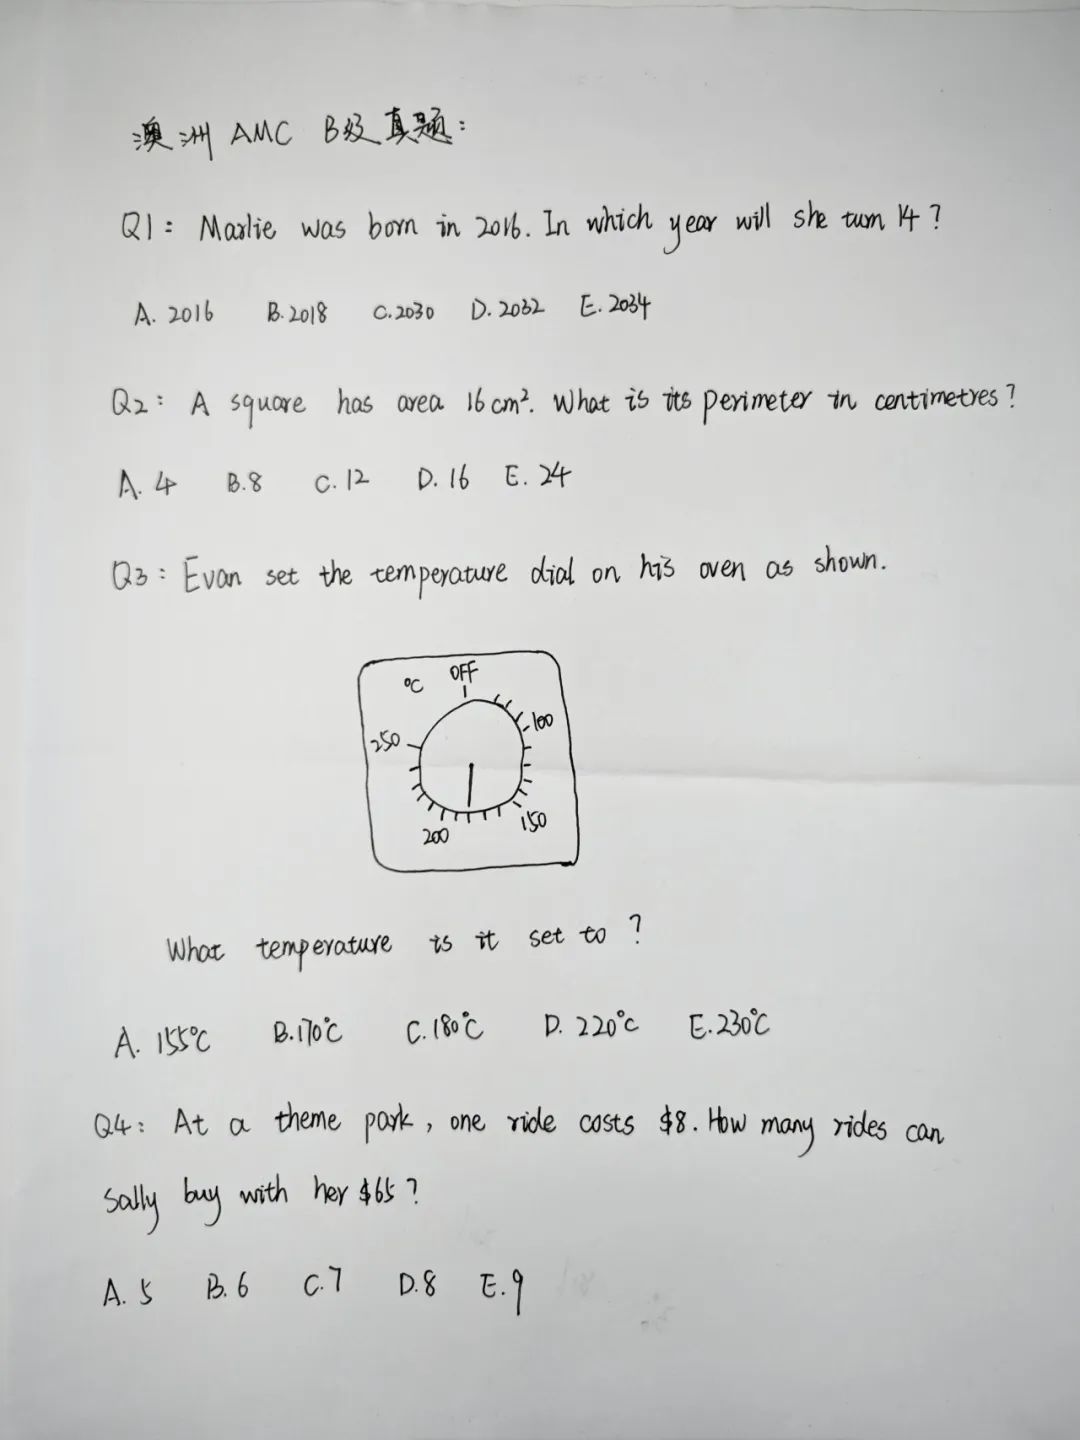 澳洲 AMC B级真题:
Q1: Marlie was born in 2016. In which year will she turn 14?
A. 2016 B. 2018 C. 2030 D. 2032 E. 2034
Q2: A square has area 16 cm². What is its perimeter in centimetres?
A. 4 B. 8 C. 12 D. 16 E. 24
Q3: Evan set the temperature dial on his oven as shown.
°C OFF
100
250
150
200
What temperature is it set to?
A. 155°C B. 170°C C. 180°C D. 220°C E. 230°C
Q4: At a theme park, one ride costs $8. How many rides can
Sally buy with her $65?
A. 5 B. 6 C. 7 D. 8 E. 9